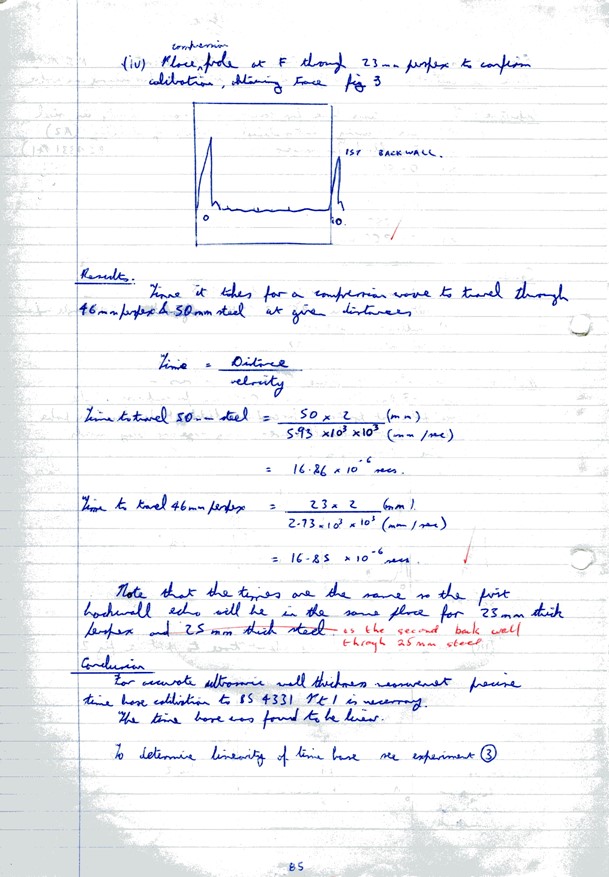 compression
(iv) Place probe at F through 23mm perspex to confirm
calibration, obtaining trace fig 3
1ST BACKWALL.
0
10.
Results.
Time it takes for a compression wave to travel through
46mm perspex & 50mm steel at given distances
Time = Distance
velocity
Time to travel 50mm steel = 50 x 2 (mm)
5.93 x10³ x10³ (mm/sec)
= 16.86 x 10⁻⁶ secs.
Time to travel 46mm perspex = 23 x 2 (mm).
2.73 x 10³ x 10³ (mm/sec)
= 16.85 x 10⁻⁶ secs.
Note that the times are the same so the first
backwall echo will be in the same place for 23mm thick
perspex and 25mm thick steel. as the second back wall
through 25mm steel
Conclusion
For accurate ultrasonic wall thickness measurement precise
time base calibration to BS 4331 Pt 1 is necessary.
The time base was found to be linear.
To determine linearity of time base see experiment ③
B5